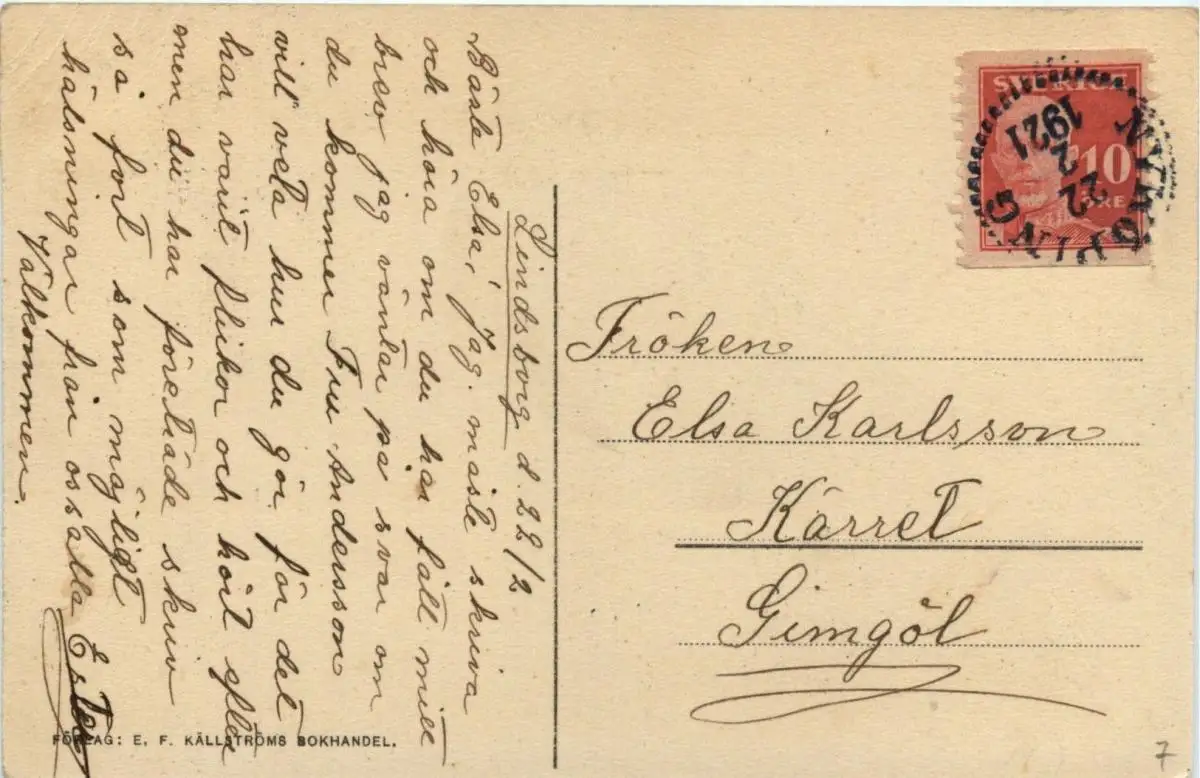 Lindsborg d. 22/2.
Bästa Elsa, jag måste skriva
och höra om du har fått mitt
brev jag väntar på svar om
du kommer Fru Andersson
vill veta hur du gör för det
har varit flickor och hört efter
men du har företräde skriv
så fort som möjligt
hälsningar från oss alla Ester
Välkommen.
SVERIGE
10
ÖRE
NYKÖPING
22 2
1921
Fröken
Elsa Karlsson
Kärret
Gimgöl
FÖRLAG: E. F. KÄLLSTRÖMS BOKHANDEL.
7